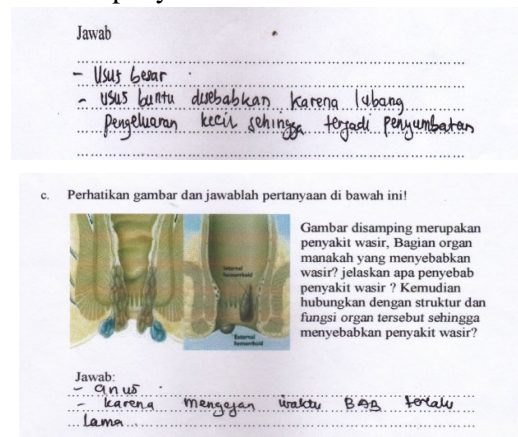 Jawab
- Usus besar
- usus buntu disebabkan karena lubang
pengeluaran kecil sehingga terjadi penyumbatan
c. Perhatikan gambar dan jawablah pertanyaan di bawah ini!
Internal
hemorrhoid
External
hemorrhoid
Gambar disamping merupakan
penyakit wasir, Bagian organ
manakah yang menyebabkan
wasir? jelaskan apa penyebab
penyakit wasir ? Kemudian
hubungkan dengan struktur dan
fungsi organ tersebut sehingga
menyebabkan penyakit wasir?
Jawab:
- anus
- karena mengejan waktu BAB terlalu
Lama